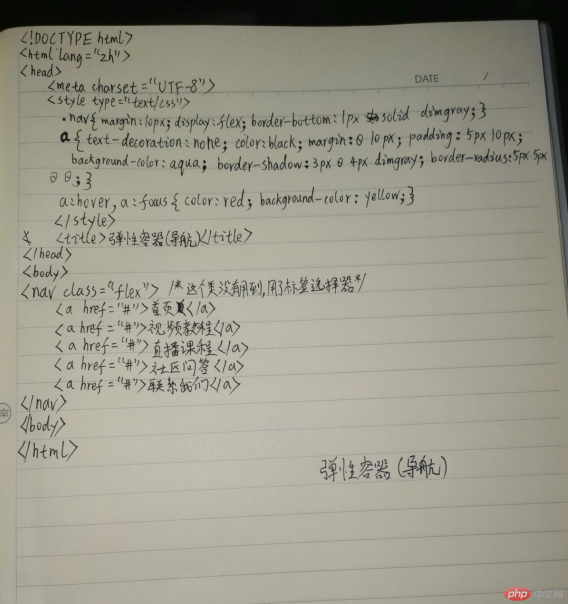 <!DOCTYPE html>
<html lang="zh">
<head>
DATE /
<meta charset="UTF-8">
<style type="text/css">
.nav{margin:10px; display:flex; border-bottom:1px solid dimgray;}
a{text-decoration:none; color:black; margin:0 10px; padding:5px 10px;
background-color:aqua; border-shadow:3px 0 4px dimgray; border-radius:5px 5px
0 0;}
a:hover,a:focus{color:red; background-color:yellow;}
</style>
<title>弹性容器(导航)</title>
</head>
<body>
<nav class="flex"> /*这个类没有用到,用了标签选择器*/
<a href="#">首页</a>
<a href="#">视频教程</a>
<a href="#">直播课程</a>
<a href="#">社区问答</a>
<a href="#">联系我们</a>
</nav>
<body>
</html>
弹性容器(导航)
php 中文网